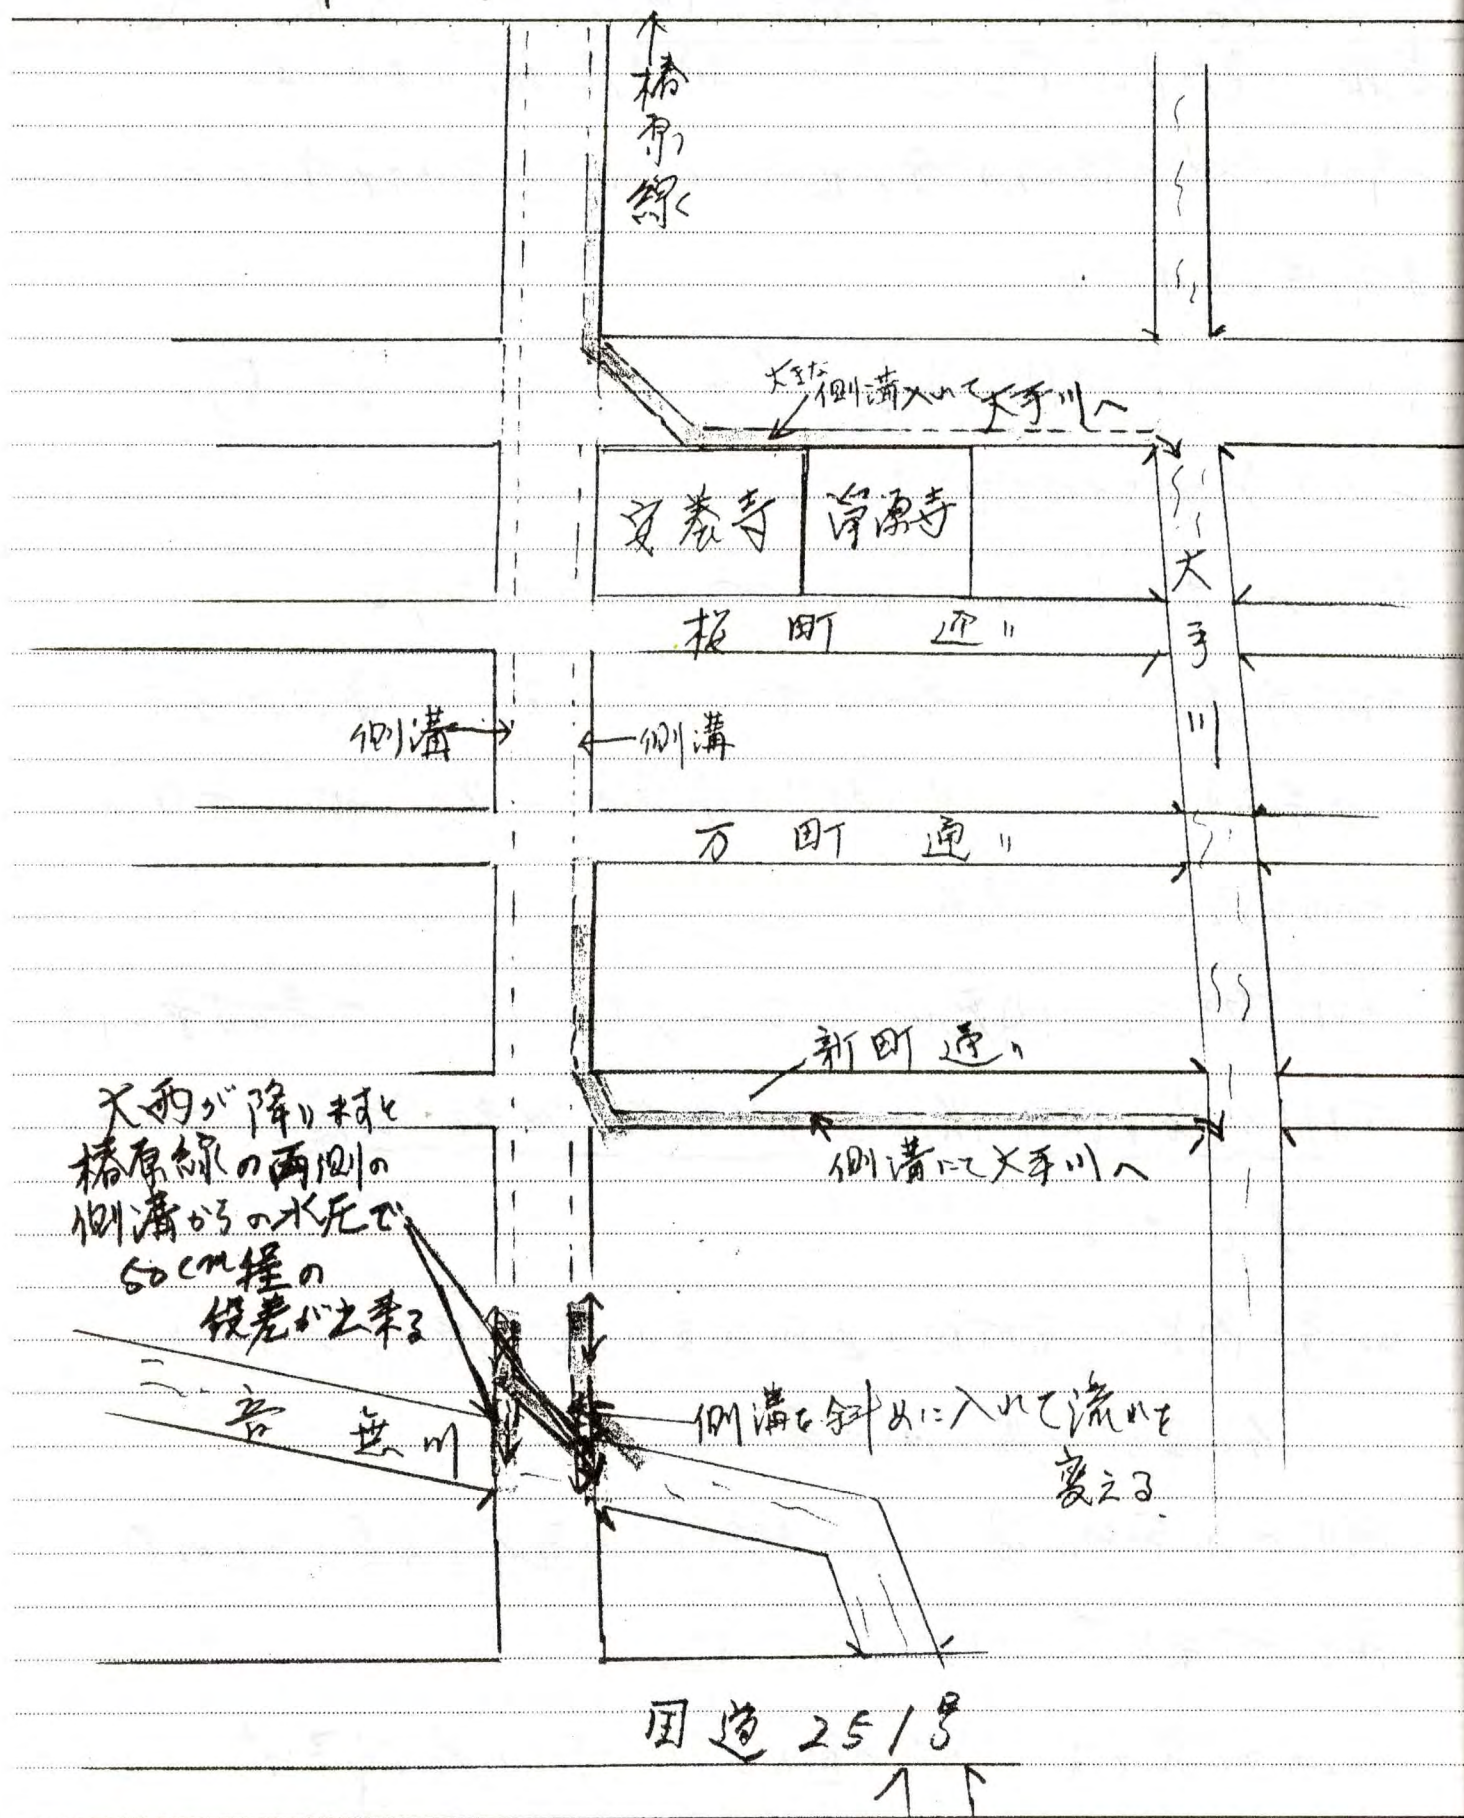 ↑椿原線
大きな側溝入れて大手川へ
安養寺
浄源寺
大手川
桜町通り
側溝→
←側溝
万町通り
新町通り
側溝にて大手川へ
大雨が降りますと
椿原線の両側の
側溝からの水圧で
50cm程の
段差が出来る
音無川
側溝を斜めに入れて流れを
変える
国道251号